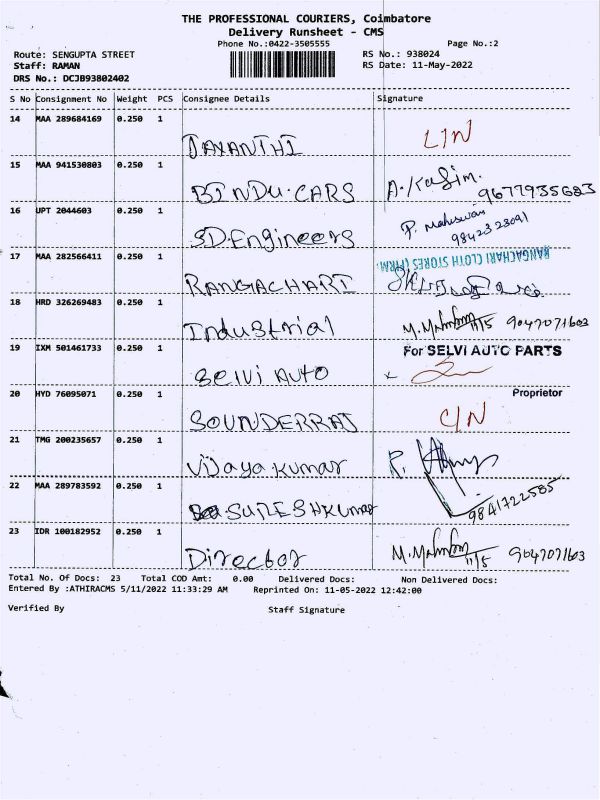 THE PROFESSIONAL COURIERS, Coimbatore
Delivery Runsheet - CMS
Phone No.:0422-3505555 Page No.:2
Route: SENGUPTA STREET RS No.: 938024
Staff: RAMAN RS Date: 11-May-2022
DRS No.: DCJB93802402
S No Consignment No Weight PCS Consignee Details Signature
14 MAA 289684169 0.250 1
JAYANTHI L/N
15 MAA 941530803 0.250 1
BINDU.CARS A.Kasim. 9677935683
16 UPT 2044603 0.250 1 P. Maheswari
SD.Engineers 9842323091
17 MAA 282566411 0.250 1 RANGACHARI CLOTH STORES (FIRM)
RANGACHARI
18 HRD 326269483 0.250 1
Industrial 11/5 9047071603
19 IXM 501461733 0.250 1 For SELVI AUTO PARTS
Selvi Auto
20 HYD 76095071 0.250 1 Proprietor
SOUNDERRAJ C/N
21 TMG 200235657 0.250 1
Vijaya kumar R.
22 MAA 289783592 0.250 1
SURESHKUMAR 9841722585
23 IDR 100182952 0.250 1
Director 11/5 9047071603
Total No. Of Docs: 23 Total COD Amt: 0.00 Delivered Docs: Non Delivered Docs:
Entered By :ATHIRACMS 5/11/2022 11:33:29 AM Reprinted On: 11-05-2022 12:42:00
Verified By Staff Signature